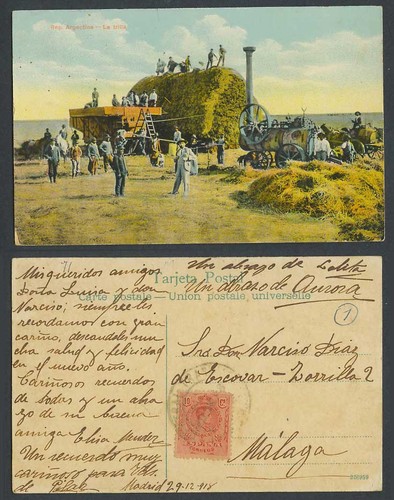 Rep. Argentina - La trilla
Un abrazo de Lolita
Un abrazo de Aurora
Tarjeta Postal
Carte postale — Union postale universelle
1
Mis queridos amigos
Doña Luisa y don
Narciso; siempre les
recordamos con gran
cariño, deseandoles mu
cha salud y felicidad
en el nuevo año.
Cariñosos recuerdos
de todas y un abra
zo de su buena
amiga Elisa Mendez
Un recuerdo muy
cariñoso para Vds.
de Pilar
Madrid 29-12-918
Sr. Don Narciso Diaz
de Escovar - Zorrilla 2
Málaga